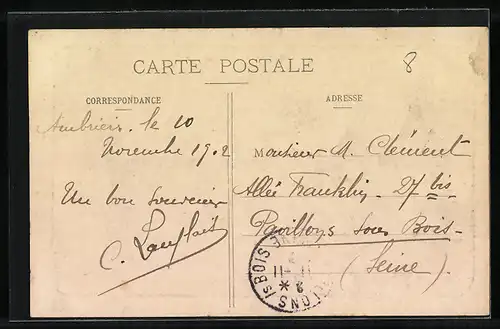 8
CARTE POSTALE
CORRESPONDANCE
ADRESSE
le 10
Novembre 19.2
Un bon souvenir
C. Langlais
Monsieur A. Clément
Allée Franklin. 27 bis
Pavillons sous Bois
(Seine).
S/S BOIS
11